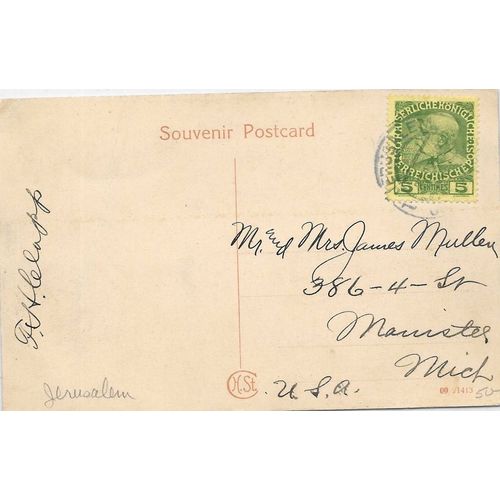 Souvenir Postcard
KAISERLICHE KÖNIGLICHE
ÖSTERREICHISCHE
5 CENTIMES 5
JERUSALEM
F. H. Clapp
Mr. and Mrs. James Mullen
386-4-St
Manistee
Mich
U.S.A.
Jerusalem
H.St.
50